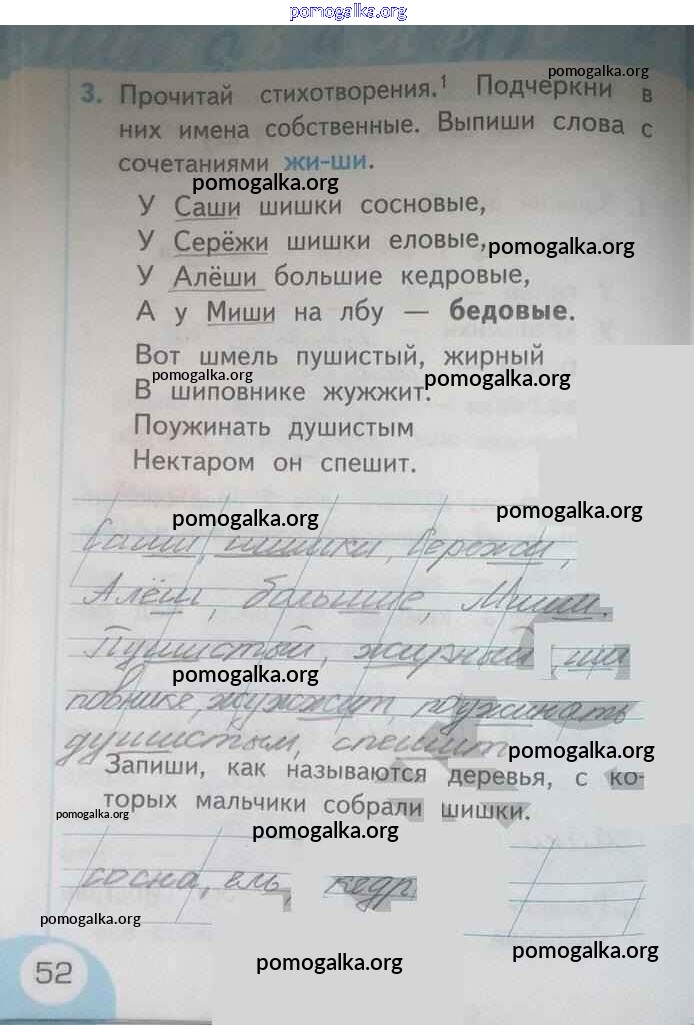 pomogalka.org
pomogalka.org
3. Прочитай стихотворения.¹ Подчеркни в
них имена собственные. Выпиши слова с
сочетаниями жи-ши.
pomogalka.org
У Саши шишки сосновые,
У Серёжи шишки еловые,
pomogalka.org
У Алёши большие кедровые,
А у Миши на лбу — бедовые.
Вот шмель пушистый, жирный
pomogalka.org
pomogalka.org
В шиповнике жужжит.
Поужинать душистым
Нектаром он спешит.
pomogalka.org
pomogalka.org
Саши, шишки, Серёжи,
Алёш, большие, Миши.
Пушистый, жирный, ши
pomogalka.org
повнике, жужжит, поужинать
душистым, спешит
pomogalka.org
Запиши, как называются деревья, с ко-
торых мальчики собрали шишки.
pomogalka.org
pomogalka.org
сосна, ель, кедр
pomogalka.org
pomogalka.org
pomogalka.org
52